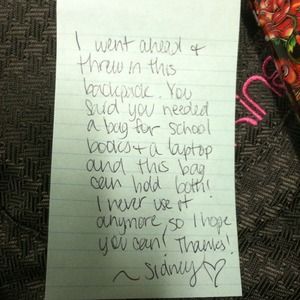 I went ahead +
threw in this
backpack. You
said you needed
a bag for school
books + a laptop
and this bag
can hold both!
I never use it
anymore, so I hope
you can! Thanks!
~ Sidney ♡